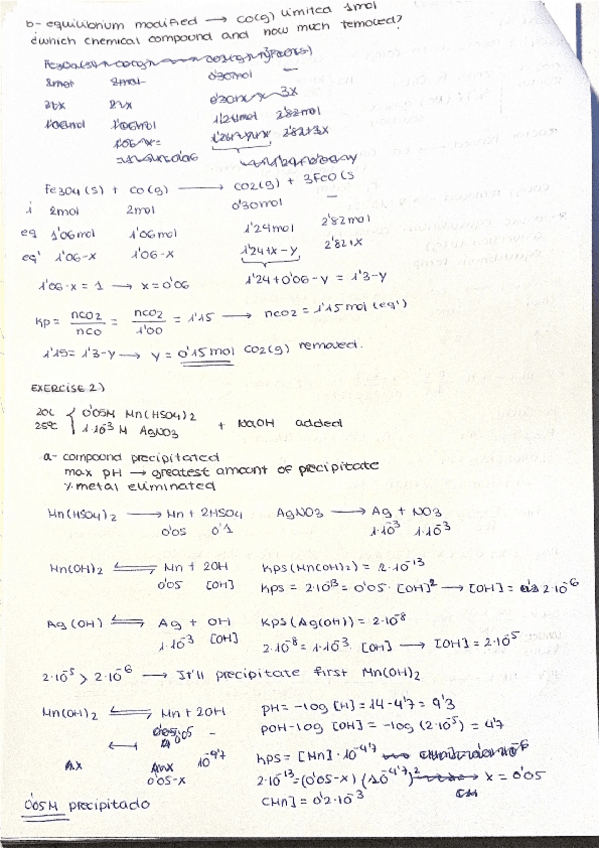 b- equilibrium modified → CO(g) limited 1mol
¿which chemical compound and how much removed?
2mol 2mol 0'30mol —
1'06mol 1'06mol 1'24mol 2'82mol
Fe3O4(s) + CO(g) → CO2(g) + 3FeO(s
i 2mol 2mol 0'30mol —
eq 1'06mol 1'06mol 1'24mol 2'82mol
eq' 1'06-x 1'06-x 1'24+x-y 2'82+x
1'06-x = 1 → x = 0'06 1'24+0'06-y = 1'3-y
Kp = nCO2/nCO = nCO2/1'00 = 1'15 → nCO2 = 1'15mol (eq')
1'15 = 1'3-y → y = 0'15mol CO2(g) removed.
EXERCISE 2)
20L { 0'05M Mn(HSO4)2
25ºC { 1·10^-3 M AgNO3 + NaOH added
a- compound precipitated
max pH → greatest amount of precipitate
% metal eliminated
Mn(HSO4)2 → Mn + 2HSO4 AgNO3 → Ag + NO3
0'05 0'1 1·10^-3 1·10^-3
Mn(OH)2 ⇌ Mn + 2OH Kps(Mn(OH)2) = 2·10^-13
0'05 [OH] Kps = 2·10^-13 = 0'05·[OH]^2 → [OH] = 2·10^-6
Ag(OH) ⇌ Ag + OH Kps(Ag(OH)) = 2·10^-8
1·10^-3 [OH] 2·10^-8 = 1·10^-3·[OH] → [OH] = 2·10^-5
2·10^-5 > 2·10^-6 → It'll precipitate first Mn(OH)2
Mn(OH)2 ⇌ Mn + 2OH pH = -log [H] = 14-4'7 = 9'3
0'05 - pOH-log [OH] = -log (2·10^-5) = 4'7
10^-4'7 Kps = [Mn]·10^-4'7
0'05-x 2·10^-13 = (0'05-x)(10^-4'7)^2 → x = 0'05
[Mn] = 0'2·10^-3
0'05M precipitado